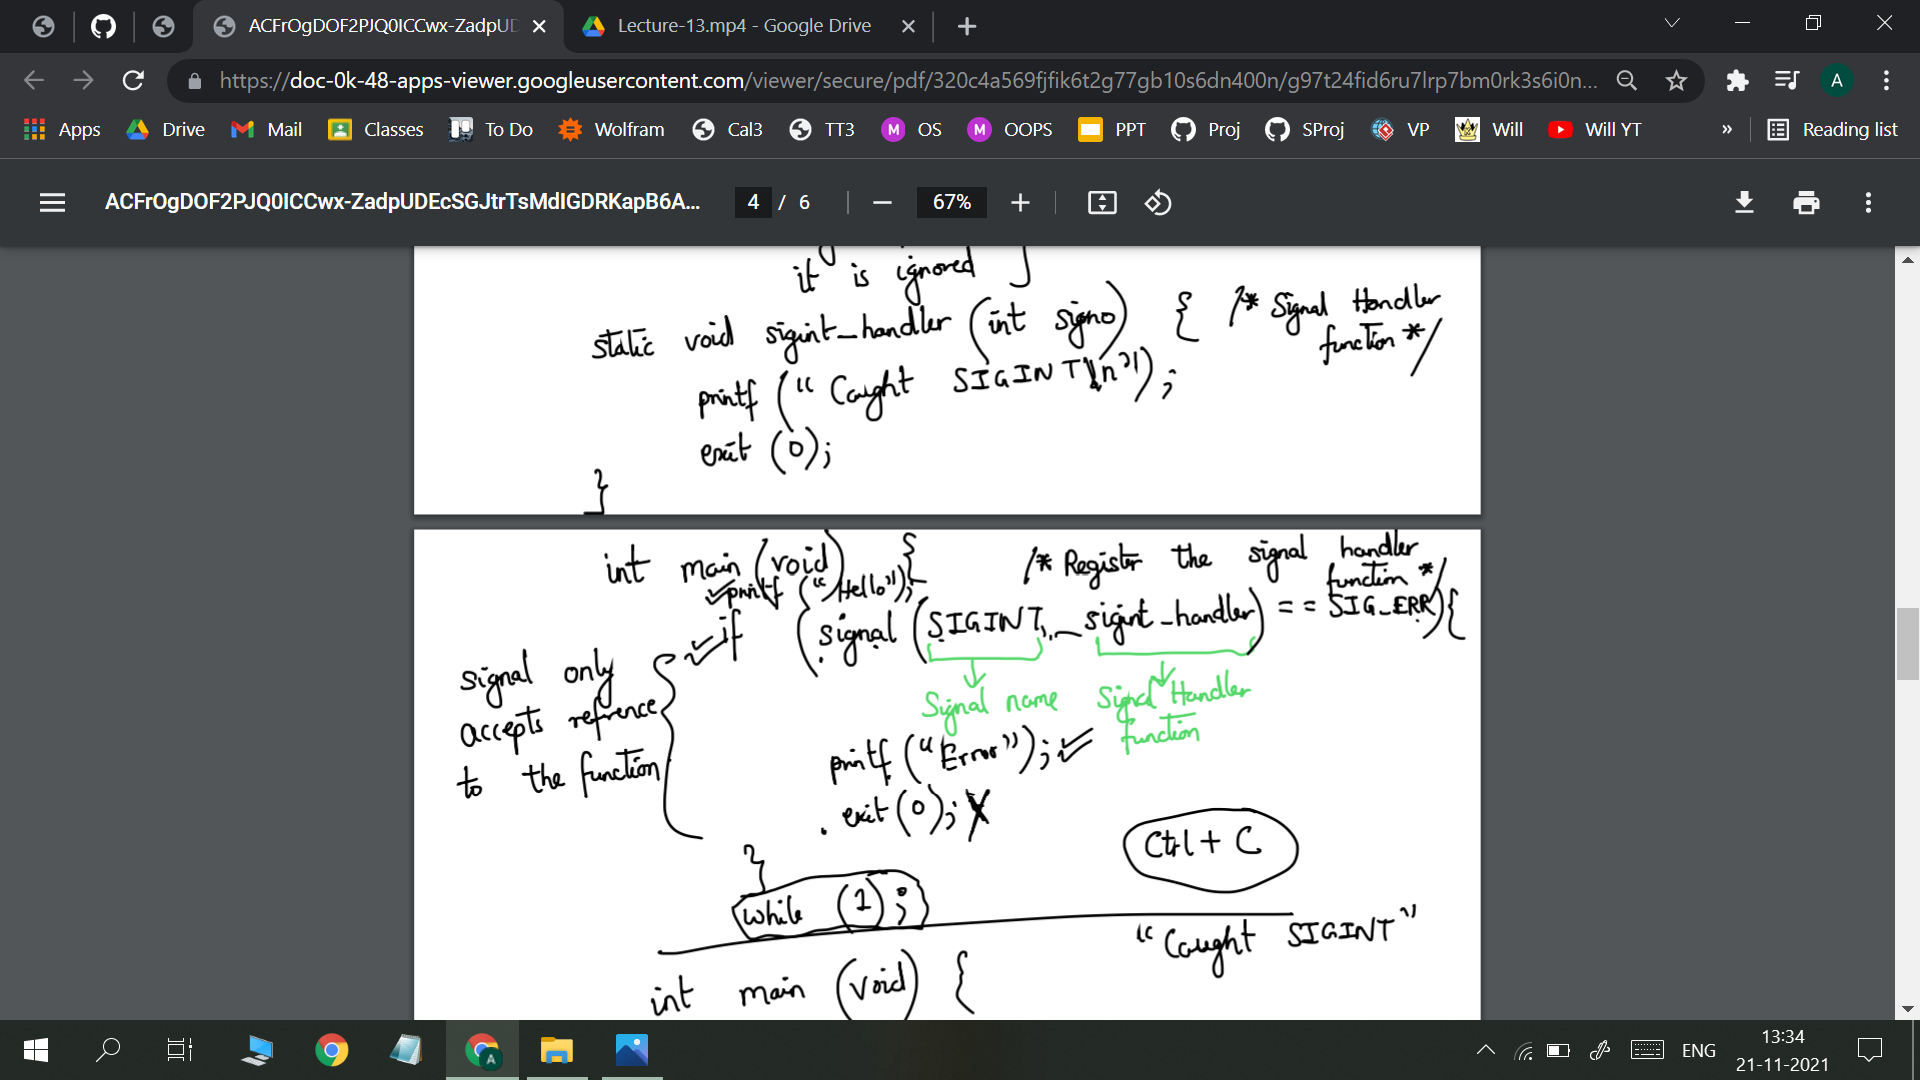 ACFrOgDOF2PJQ0ICCwx-ZadpUD
Lecture-13.mp4 - Google Drive
https://doc-0k-48-apps-viewer.googleusercontent.com/viewer/secure/pdf/320c4a569fjfik6t2g77gb10s6dn400n/g97t24fid6ru7lrp7bm0rk3s6i0n...
A
Apps Drive Mail Classes To Do Wolfram Cal3 TT3 M OS M OOPS PPT Proj SProj VP Will Will YT » Reading list
ACFrOgDOF2PJQ0ICCwx-ZadpUDEcSGJtrTsMdIGDRKapB6A... 4 / 6 67%
it is ignored
static void sigint_handler (int signo) { /* Signal Handler
function */
printf (" Caught SIGINT\n");
exit (0);
}
int main (void) { /* Register the signal handler
function */
printf ("Hello");
if (signal (SIGINT, sigint_handler) == SIG_ERR) {
signal only
accepts refrence
to the function
Signal name Signal Handler
function
printf ("Error");
exit (0); X
}
Ctrl + C
while (1);
"Caught SIGINT"
int main (void) {
A
ENG
13:34
21-11-2021